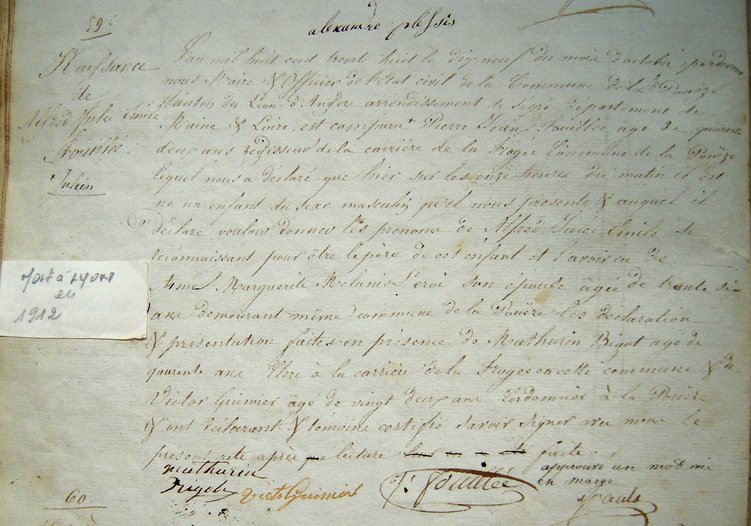 alexandre plessis
59.
Naissance
de
Alfred Jules Emile
Fouillée
+ Julien
L'an mil huit cent trente huit le dix neuf du mois d'octobre pardevant
nous Maire & Officier de l'Etat civil de la Commune de la Pouëze
Canton du Lion d'Angers arrondissement de Segré Departement de
Maine & Loire, est comparu Pierre Jean Fouillée agé de quarante
deux ans Régisseur de la carrière de la Frogée Commune de la Pouëze
lequel nous a déclaré que hier sur les onze heures du matin il est
né un enfant du sexe masculin qu'il nous présente & auquel il
déclare vouloir donner les prenoms de Alfred Jules Emile se
reconnaissant pour être le père de cet enfant et l'avoir eu de
Anne Marguerite Melanie son épouse agée de trente six
ans demeurant même commune de la Pouëze les déclaration
& présentation faites en présence de Mathurin Bigot agé de
quarente ans à la carrière de la Frogée en cette commune & de
Victor Guimier agé de vingt deux ans Cordonnier à la Pouëze
& ont déclarant & témoins certifié savoir signer avec nous le
present acte après lecture faite
approuvé un mot mis
en marge
mathurin
Bigot
Victor Guimier
P. J. Fouillée
60.
Mort à Lyon
en
1912